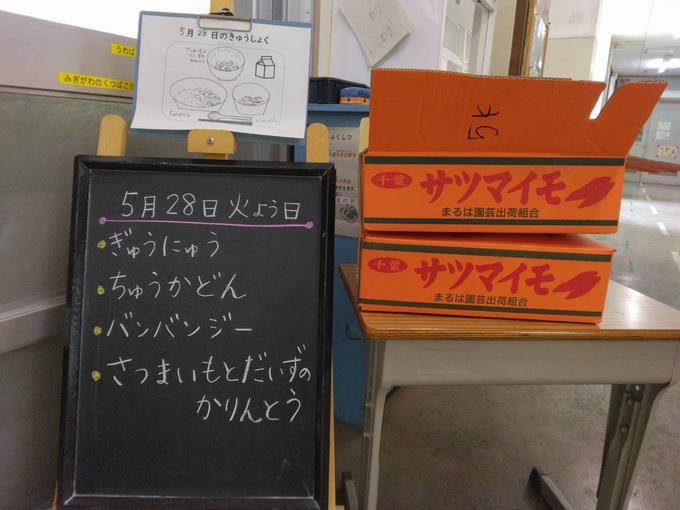 5月28日のきゅうしょく
うわば
みぎがわのくつばこの
5月28日 火よう日
ぎゅうにゅう
ちゅうかどん
バンバンジー
さつまいもとだいずの
かりんとう
千葉
サツマイモ
まるは園芸出荷組合
千葉
サツマイモ
まるは園芸出荷組合